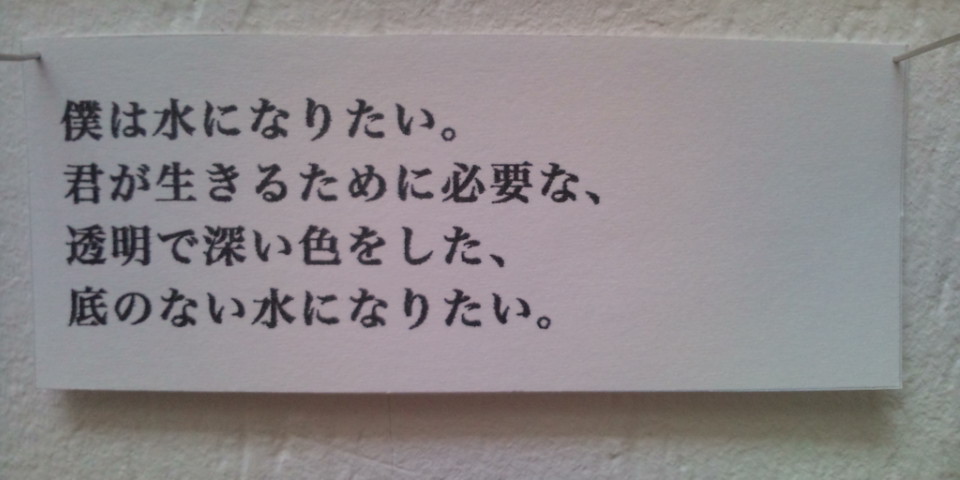 僕は水になりたい。
君が生きるために必要な、
透明で深い色をした、
底のない水になりたい。